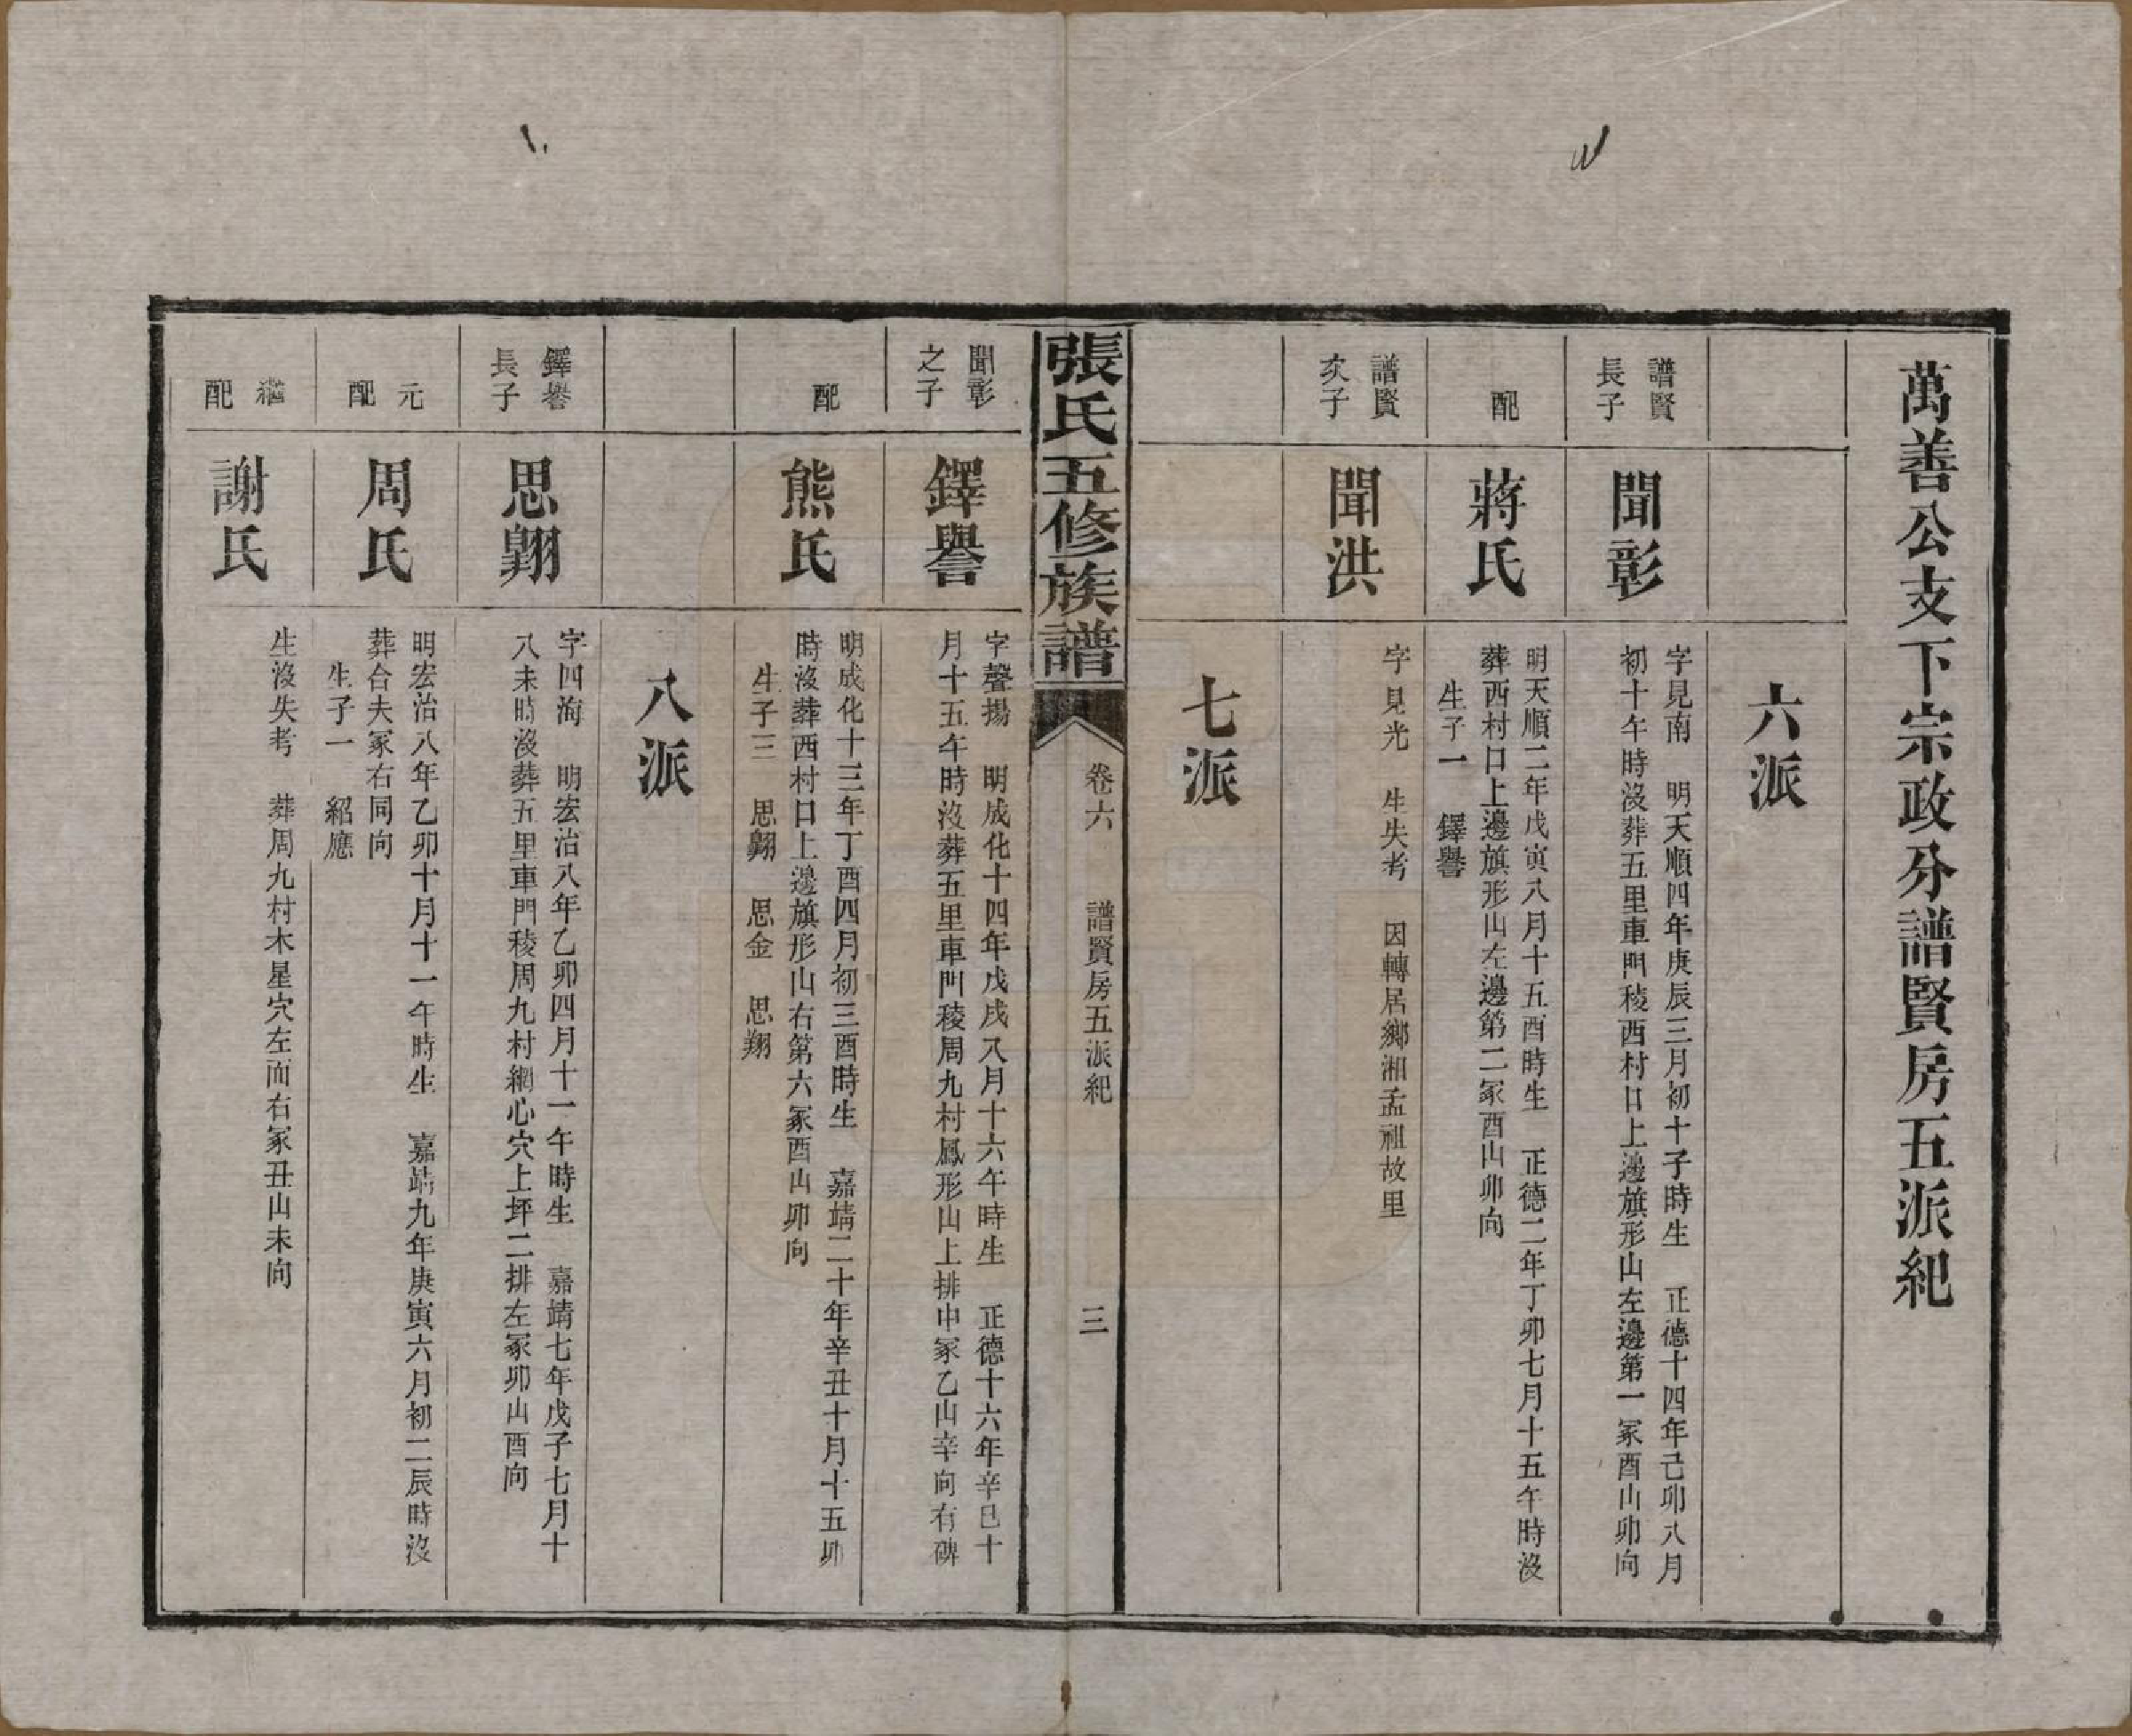 萬善公支下宗政分譜賢房五派紀
六派
譜賢
長子
聞彰
字見南　明天順四年庚辰三月初十子時生　正德十四年己卯八月
初十午時沒葬五里車門稜西村口上邊旗形山左邊第一冢酉山卯向
配
蔣氏
明天順二年戊寅八月十五酉時生　正德二年丁卯七月十五午時沒
葬西村口上邊旗形山左邊第二冢酉山卯向
生子一　鐸譽
譜賢
次子
聞洪
字見光　生失考　因轉居鄉湘孟祖故里
七派
張氏五修族譜
卷六　譜賢房五派紀
三
聞彰
之子
鐸譽
字聲揚　明成化十四年戊戌八月十六午時生　正德十六年辛巳十
月十五午時沒葬五里車門稜周九村鳳形山上排中冢乙山辛向有碑
配
熊氏
明成化十三年丁酉四月初三酉時生　嘉靖二十年辛丑十月十五卯
時沒葬西村口上邊旗形山右第六冢酉山卯向
生子三　思翺　思金　思翔
八派
鐸譽
長子
思翺
字四海　明宏治八年乙卯四月十一午時生　嘉靖七年戊子七月十
八未時沒葬五里車門稜周九村網心穴上坪二排左冢卯山酉向
元
配
周氏
明宏治八年乙卯十月十一午時生　嘉靖九年庚寅六月初二辰時沒
葬合夫冢右同向
生子一　紹應
繼
配
謝氏
生沒失考　葬周九村木星穴左面右冢丑山未向